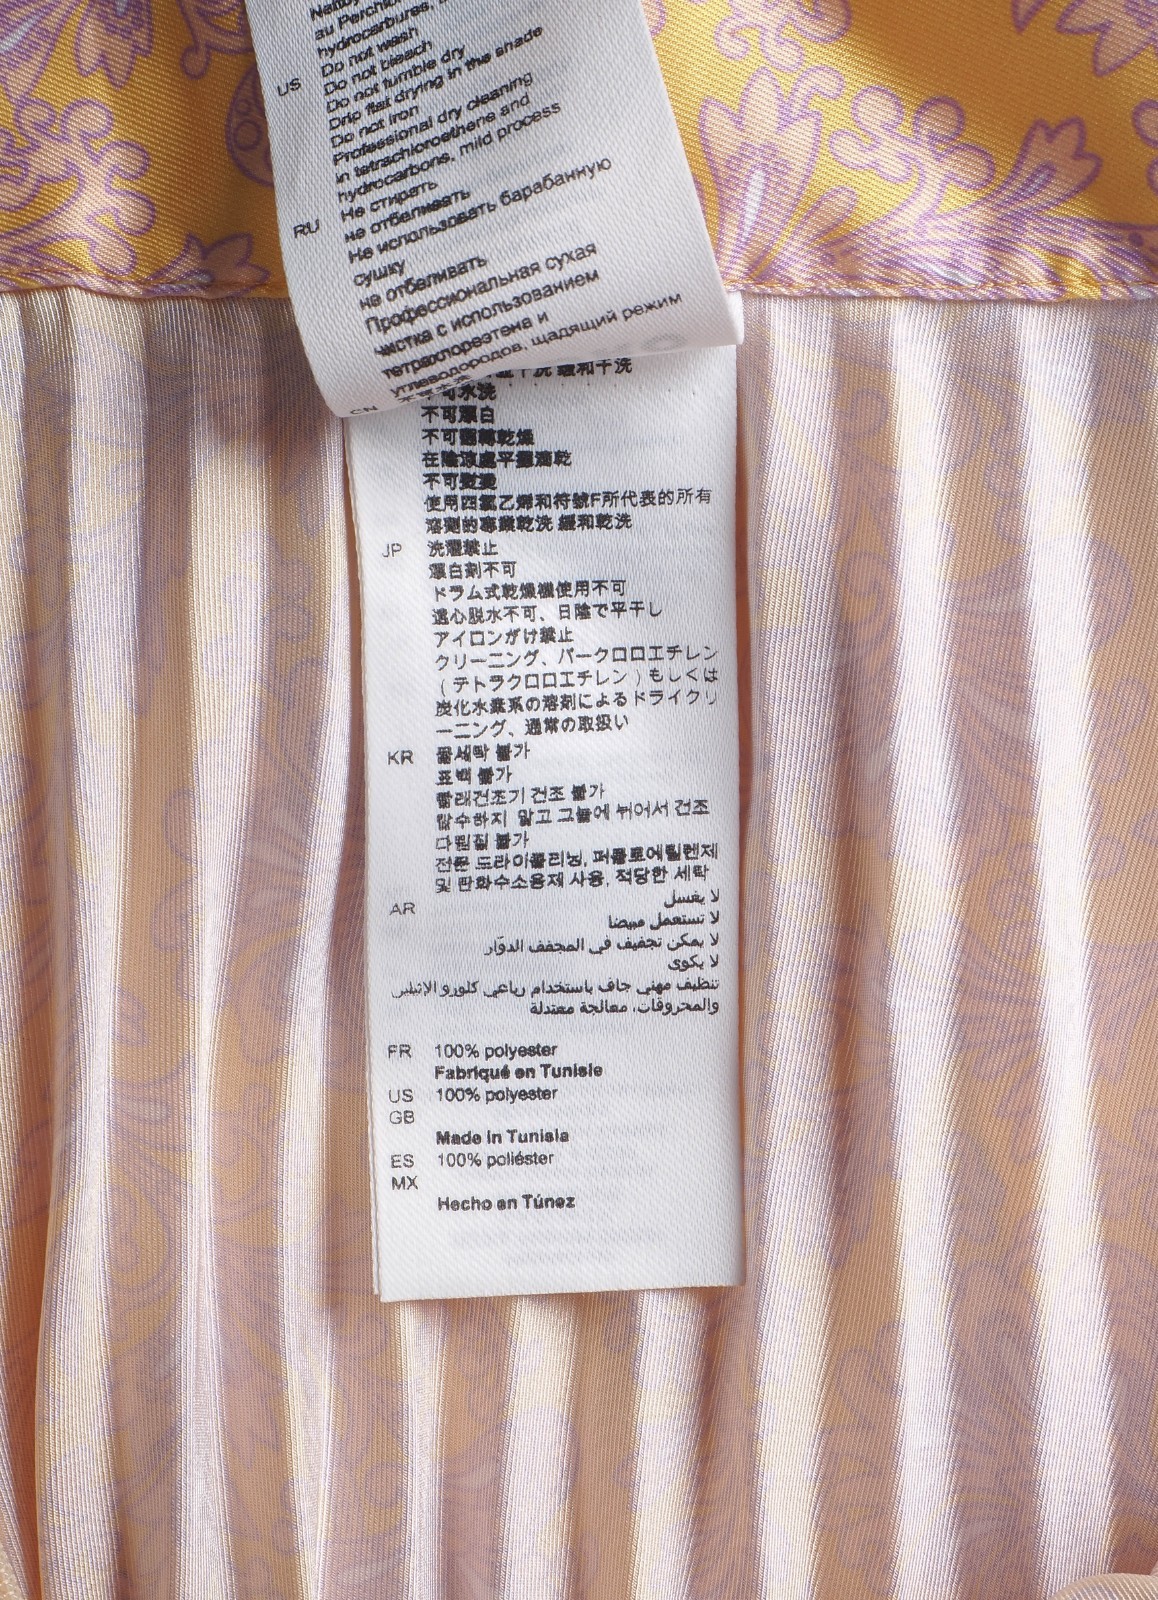 au
hydrocarbures,
US Do not wash
Do not bleach
Do not tumble dry
Drip flat drying in the shade
Do not iron
Professional dry cleaning
in tetrachloroethene and
hydrocarbons, mild process
RU Не стирать
не отбеливать
Не использовать барабанную
сушку
не отбеливать
Профессиональная сухая
чистка с использованием
тетрахлорэтена и
углеводородов, щадящий режим
CN
缓和干洗
不可水洗
不可漂白
不可翻轉乾燥
在陰涼處平攤滴乾
不可熨燙
使用四氯乙烯和符號F所代表的所有
溶劑的專業乾洗 緩和乾洗
JP 洗濯禁止
漂白剤不可
ドラム式乾燥機使用不可
遠心脱水不可、日陰で平干し
アイロンがけ禁止
クリーニング、パークロロエチレン
(テトラクロロエチレン)もしくは
炭化水素系の溶剤によるドライクリ
ーニング、通常の取扱い
KR 물세탁 불가
표백 불가
빨래건조기 건조 불가
탈수하지 말고 그늘에 뉘어서 건조
다림질 불가
전문 드라이클리닝, 퍼클로에틸렌제
및 탄화수소용제 사용, 적당한 세탁
AR لا يغسل
لا تستعمل مبيضا
لا يمكن تجفيف في المجفف الدوّار
لا يكوى
تنظيف مهني جاف باستخدام رباعي كلورو الإثيلين
والمحروقات، معالجة معتدلة
FR 100% polyester
Fabriqué en Tunisie
US 100% polyester
GB
Made in Tunisia
ES 100% poliéster
MX
Hecho en Túnez